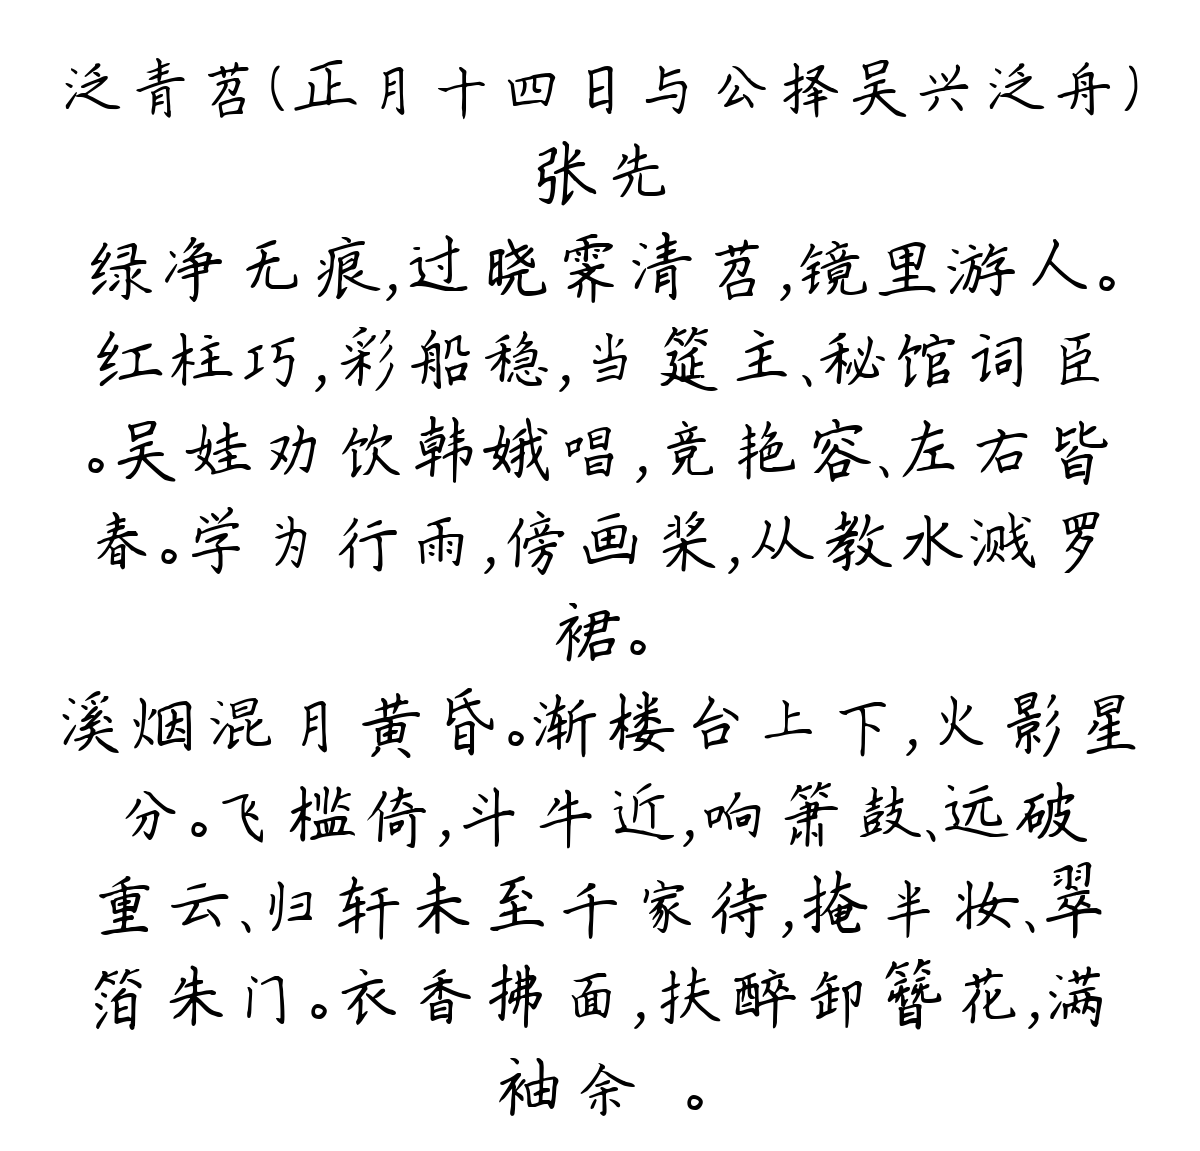 泛青苕(正月十四日与公择吴兴泛舟)
张先
绿净无痕,过晓霁清苕,镜里游人。
红柱巧,彩船稳,当筵主、秘馆词臣
。吴娃劝饮韩娥唱,竞艳容、左右皆
春。学为行雨,傍画桨,从教水溅罗
裙。
溪烟混月黄昏。渐楼台上下,火影星
分。飞槛倚,斗牛近,响箫鼓、远破
重云、归轩未至千家待,掩半妆、翠
箔朱门。衣香拂面,扶醉卸簪花,满
袖余 。